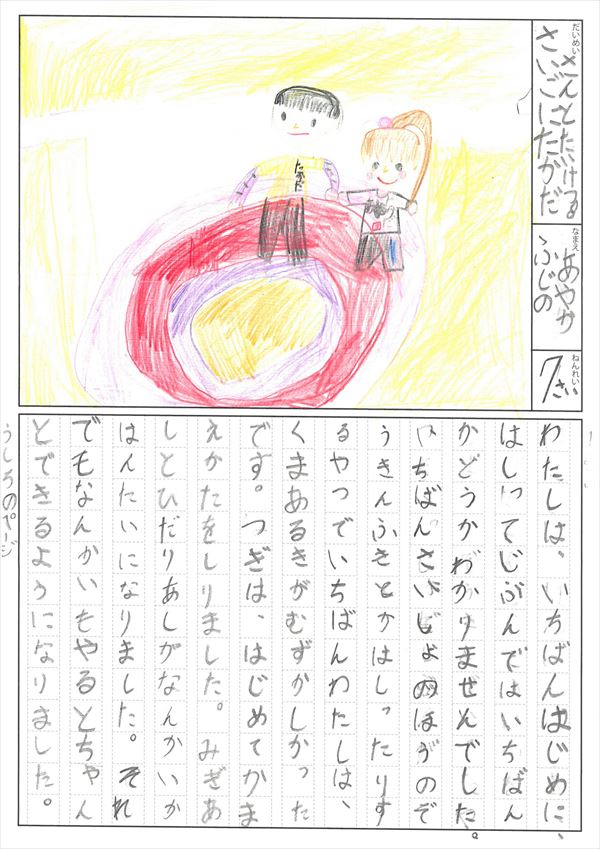 だいめい
さいごにたかだ
さんとたいける
なまえ
ふじの
あやか
ねんれい
7さい
たかだ
わたしは、いちばんはじめに、
はしってじぶんではいちばん
かどうかわかりませんでした。
いちばんさいしょのほうのぞ
うきんふきとかはしったりす
るやつでいちばんわたしは、
くまあるきがむずかしかった
です。つぎは、はじめてかま
えかたをしりました。みぎあ
しとひだりあしがなんかいか
はんたいになりました。それ
でもなんかいもやるとちゃん
とできるようになりました。
うしろのページ